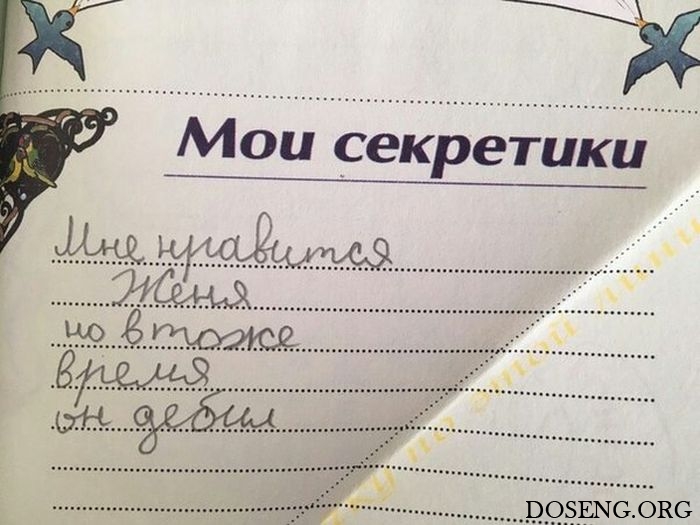 Мои секретики
Мне нравится
Женя
но в тоже
время
он дебил
по этой лини
DOSENG.ORG